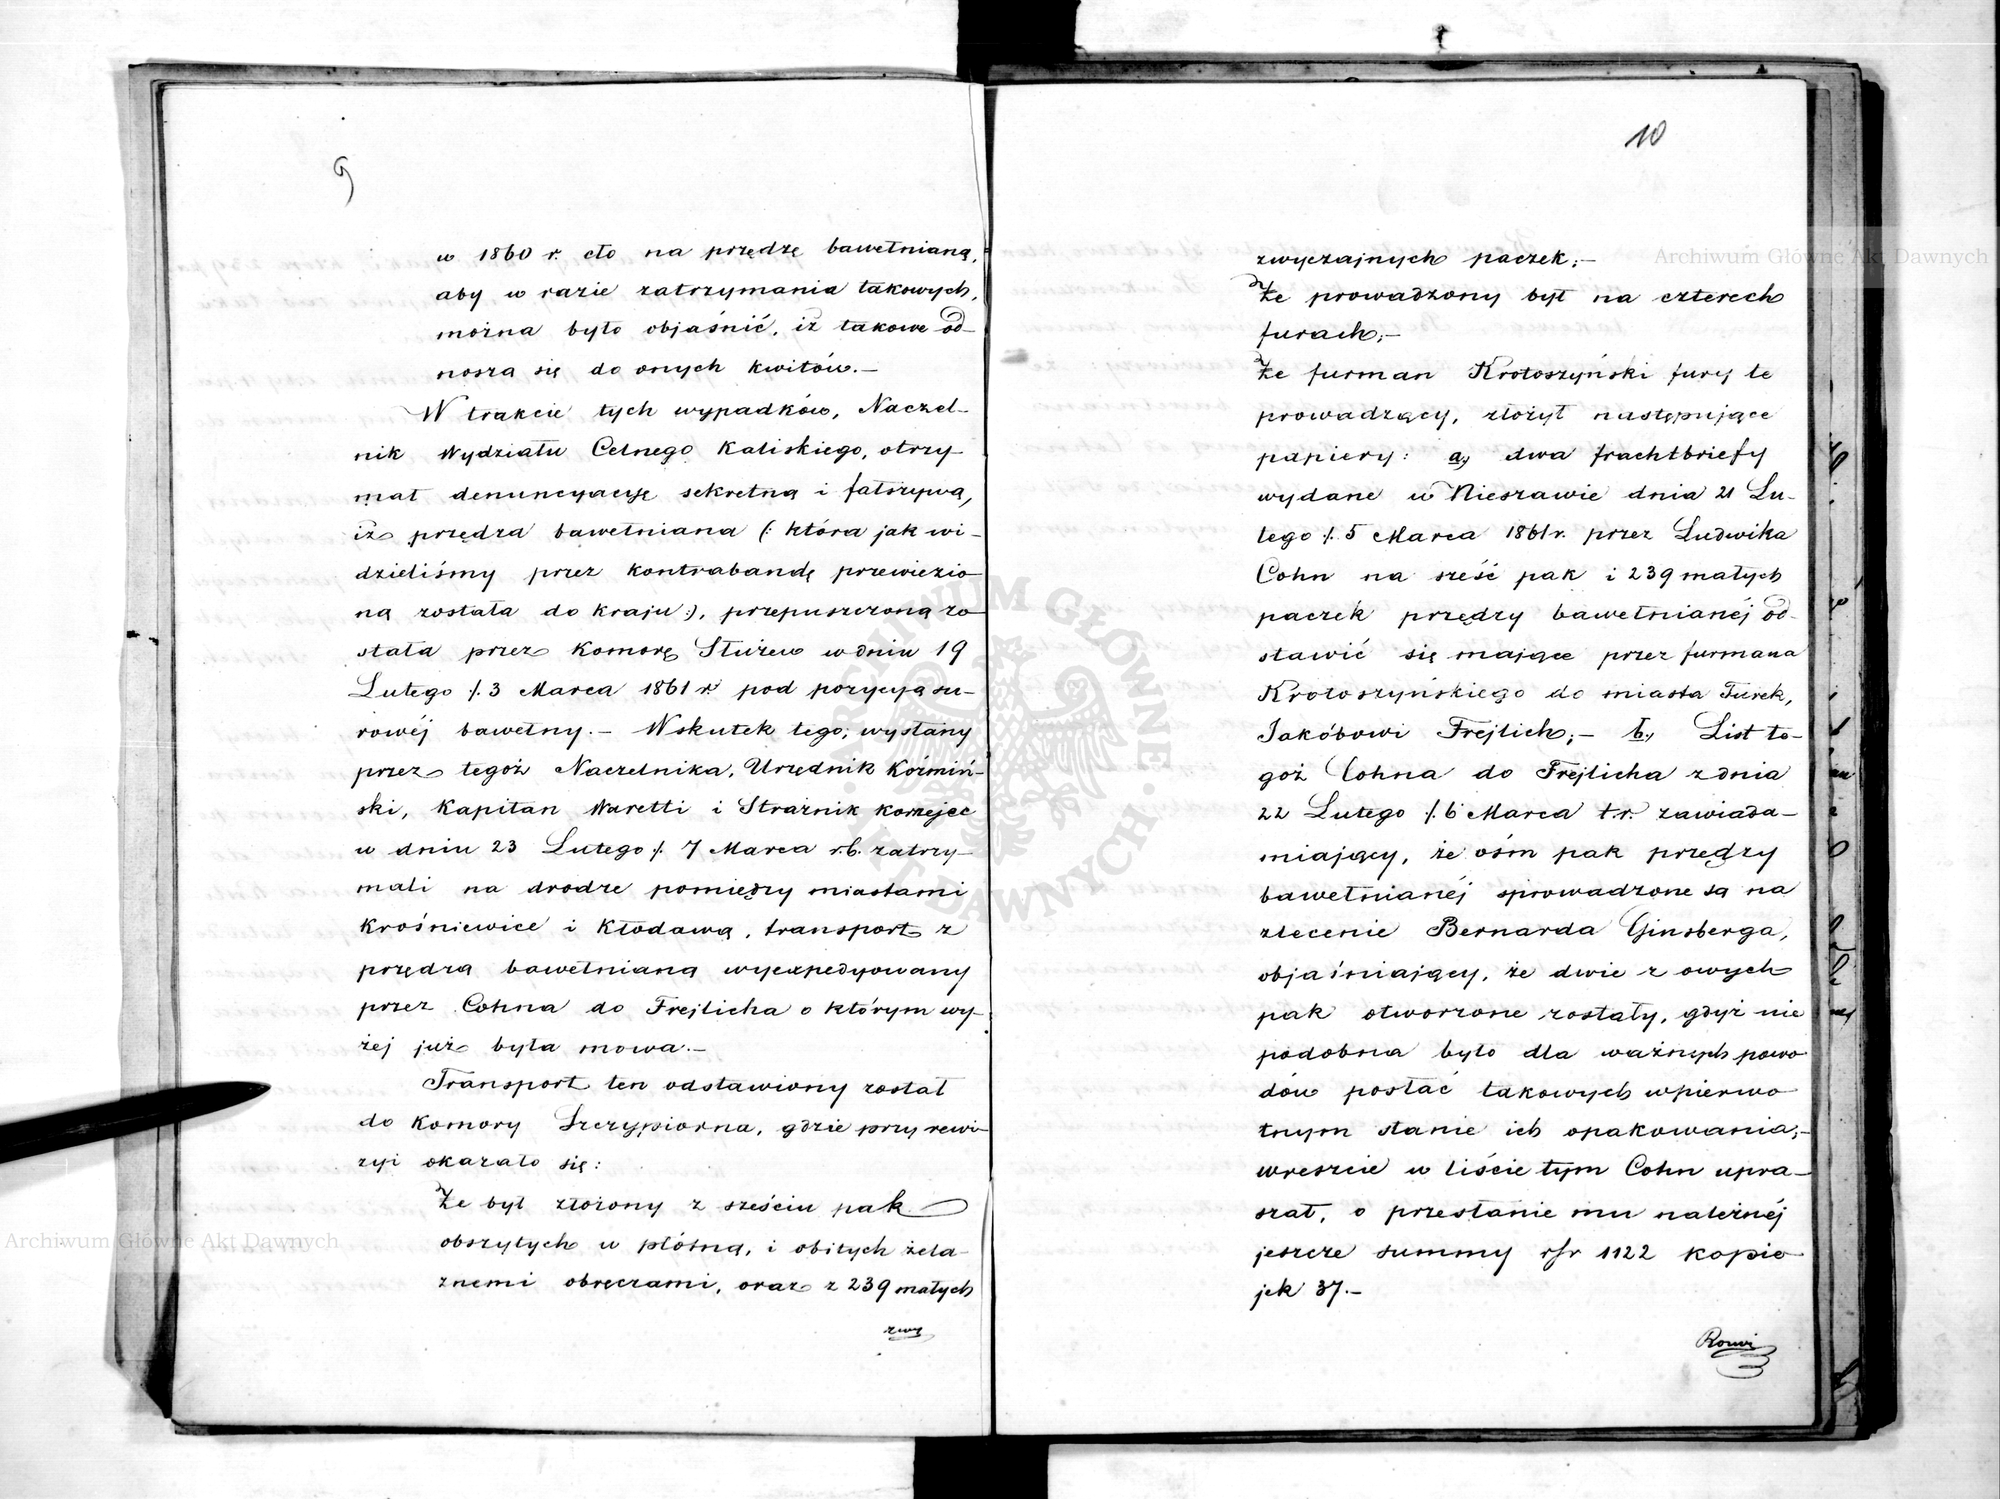 9
w 1860 r. cło na przędzę bawełnianą,
aby w razie zatrzymania takowych,
można było objaśnić, iż takowe od-
noszą się do onych kwitów.—
W trakcie tych wypadków, Naczel-
nik Wydziału Celnego Kaliskiego, otrzy-
mał denuncyacyę sekretną i fałszywą,
iż przędza bawełniana (: która jak wi-
dzieliśmy przez kontrabandę przewiezio-
ną została do kraju:), przepuszczoną zo-
stała przez Komorę Służew w dniu 19
Lutego /. 3 Marca 1861 r. pod pozycyą su-
rowéj bawełny.— Wskutek tego, wysłany
przez tegoż Naczelnika, Urzędnik Koźmiń-
ski, Kapitan Waretti i Strażnik
w dniu 23 Lutego /. 7 Marca r.b. zatrzy-
mali na drodze pomiędzy miastami
Krośniewice i Kłodawą, transport z
przędzą bawełnianą wyexpedyowany
przez Cohna do Frejlicha o którym wy-
żej już była mowa.—
Transport ten odstawiony został
do Komory Szczypiorna, gdzie przy rewi-
zyi okazało się:
Że był złożony z sześciu pak
obszytych w płótną, i obitych żela-
znemi obręczami, oraz z 239 małych
zwy
10
zwyczajnych paczek;—
Że prowadzony był na czterech
furach;—
Że furman Krotoszyński fury te
prowadzący, złożył następujące
papiery: a, dwa frachtbriefy
wydane w Nieszawie dnia 21 Lu-
tego /. 5 Marca 1861 r. przez Ludwika
Cohn na sześć pak i 239 małych
paczek przędzy bawełnianéj od-
stawić się mające przez furmana
Krotoszyńskiego do miasta Turek,
Jakóbowi Frejlich;— b, List te-
goż Cohna do Frejlicha z dnia
22 Lutego /. 6 Marca t.r. zawiada-
miający, że ośm pak przędzy
bawełnianéj sprowadzone są na
zlecenie Bernarda Ginsberga,
objaśniający, że dwie z owych
pak otworzone zostały, gdyż nie
podobna było dla ważnych powo
dów posłać takowych w pierwo
tnym stanie ich opakowania;—
wreszcie w liście tym Cohn upra-
szał, o przesłanie mu należnéj
jeszcze summy rsr 1122 kopie
jek 37.—
Archiwum Główne Akt Dawnych
Archiwum Główne Akt Dawnych
ARCHIWUM GŁÓWNE AKT DAWNYCH